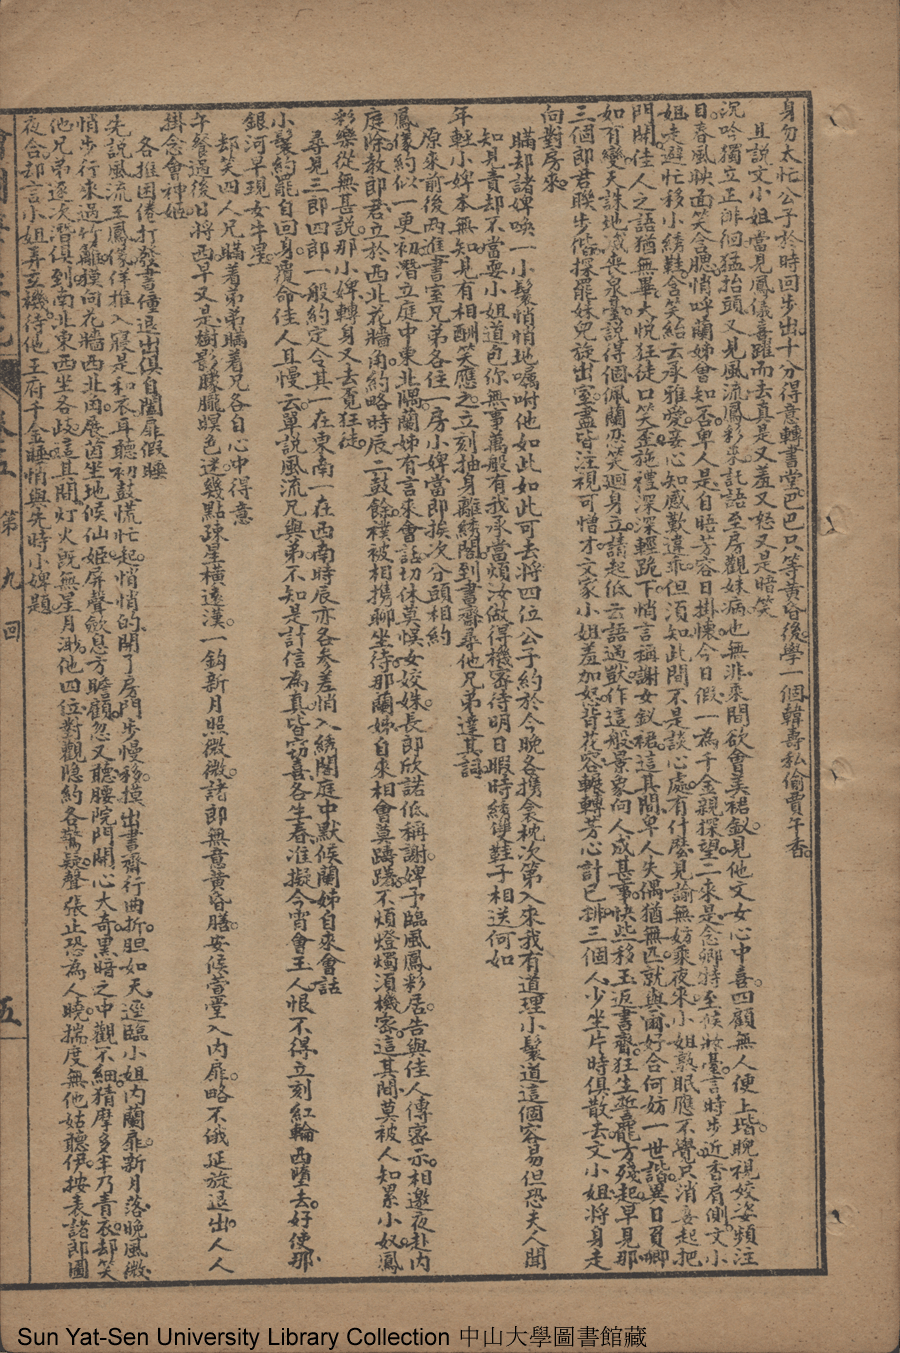 身勿太忙公子於時回步出十分得意轉書堂巴巴只等黃昏後學一個韓壽私偷賈午香
且說文小姐當見鳳儀喜躍而去真是又羞又怒又是暗笑
沉吟獨立正徘徊猛抬頭又見風流鳳彩來託語至房觀妹病也無非來問欲會美裙釵見他文女心中喜四顧無人便上堦睨視姣姿頻注
目春風映面笑含腮悄呼蘭姊會知否卑人是自睹芳容日掛懷今日假一為千金親探望二來是念卿特至候妝臺言時步近香肩側文小
姐走避忙移小綉鞋含笑紿云承雅愛妾心知感歎違乖但須知此間不是談心處有什麼見諭無妨乘夜來小姐熟眠應不覺只消妾起把
門開佳人之語猶無畢大悦狂徒口笑歪施禮深深輕跪下悄言稱謝女釵裙這其間卑人失偶猶無匹就與爾好合何妨一世諧異日負卿
如有變天誅地滅喪泉臺說得個佩蘭忍笑廻身立請起低云語過獃作這般景象向人成甚事快些移玉返書齋狂生誓罷方殘起早見那
三個郎君聯步偕探罷妹兒旋出室盡皆注視可憎才文家小姐羞加怒背花容輾轉芳心計已排三個人少坐片時俱散去文小姐將身走
向對房來
瞞却諸婢喚一小鬟悄悄地囑咐他如此如此可去將四位公子約於今晚各携衾枕次第入來我有道理小鬟道這個容易但恐夫人聞
知見責却不當耍小姐道自你無事萬般有我承當煩汝做得機密待明日暇時綉雙鞋子相送何如
年輕小婢本無知見有相酬笑應之立刻抽身離綉閣到書齋尋他兄弟達其詞
原來前後兩進書室兄弟各住一房小婢當即挨次分頭相約
鳳儀約似一更初潛立庭中東北隅蘭姊有言來會話切休莫悞女姣姝長郎欣諾低稱謝婢予臨風鳳彩居告與佳人傳密示相邀夜赴内
庭除教郎君立於西北花牆角約略時辰二鼓餘襆被相携聊坐待那蘭姊自來相會莫躊躇不煩燈燭須機密這其間莫被人知累小奴鳳
彩樂從無甚說那小婢轉身又去覓狂徒
尋見三郎四郎一般約定令其一在東南一在西南時辰亦各參差悄入綉閣庭中默候蘭姊自來會話
小鬟約罷自回身覆命佳人且慢云單說風流兄與弟不知是計信為真皆竊喜各生春准擬今宵會玉人恨不得立刻紅輪西墮去好使那
銀河早現女牛星
却笑四人兄瞞着弟弟瞞着兄各自心中得意
午餐過後日將西早又是樹影朦朧暝色迷幾點疎星橫遠漢一鈎新月照微微諸郎無意黃昏膳安候萱堂入内扉略不俄延旋退出人人
掛念會神姬
各推困倦打發書僮退出俱自闔扉假睡
先說風流王鳳儀佯推入寢是和衣耳聽初鼓慌忙起悄悄的開了房門步慢移摸出書齋行曲折胆如天逕臨小姐内蘭扉新月落晚風微
悄步行來過竹籬摸向花牆西北角展茵坐地候仙姬屏聲歛息方瞻顧忽又聽腰院門開心大奇黑暗之中觀不細猜摩多半乃青衣却笑
他兄弟逐次潛俱到南北東西坐各歧這其間灯火既無星月渺他四位對觀隱約各驚疑聲張止恐為人曉揣度無他姑聽伊按表諸郎圖
夜合却言小姐弄玄機待他王府千金睡悄與先時小婢題
第九回
五
Sun Yat-Sen University Library Collection 中山大學圖書館藏